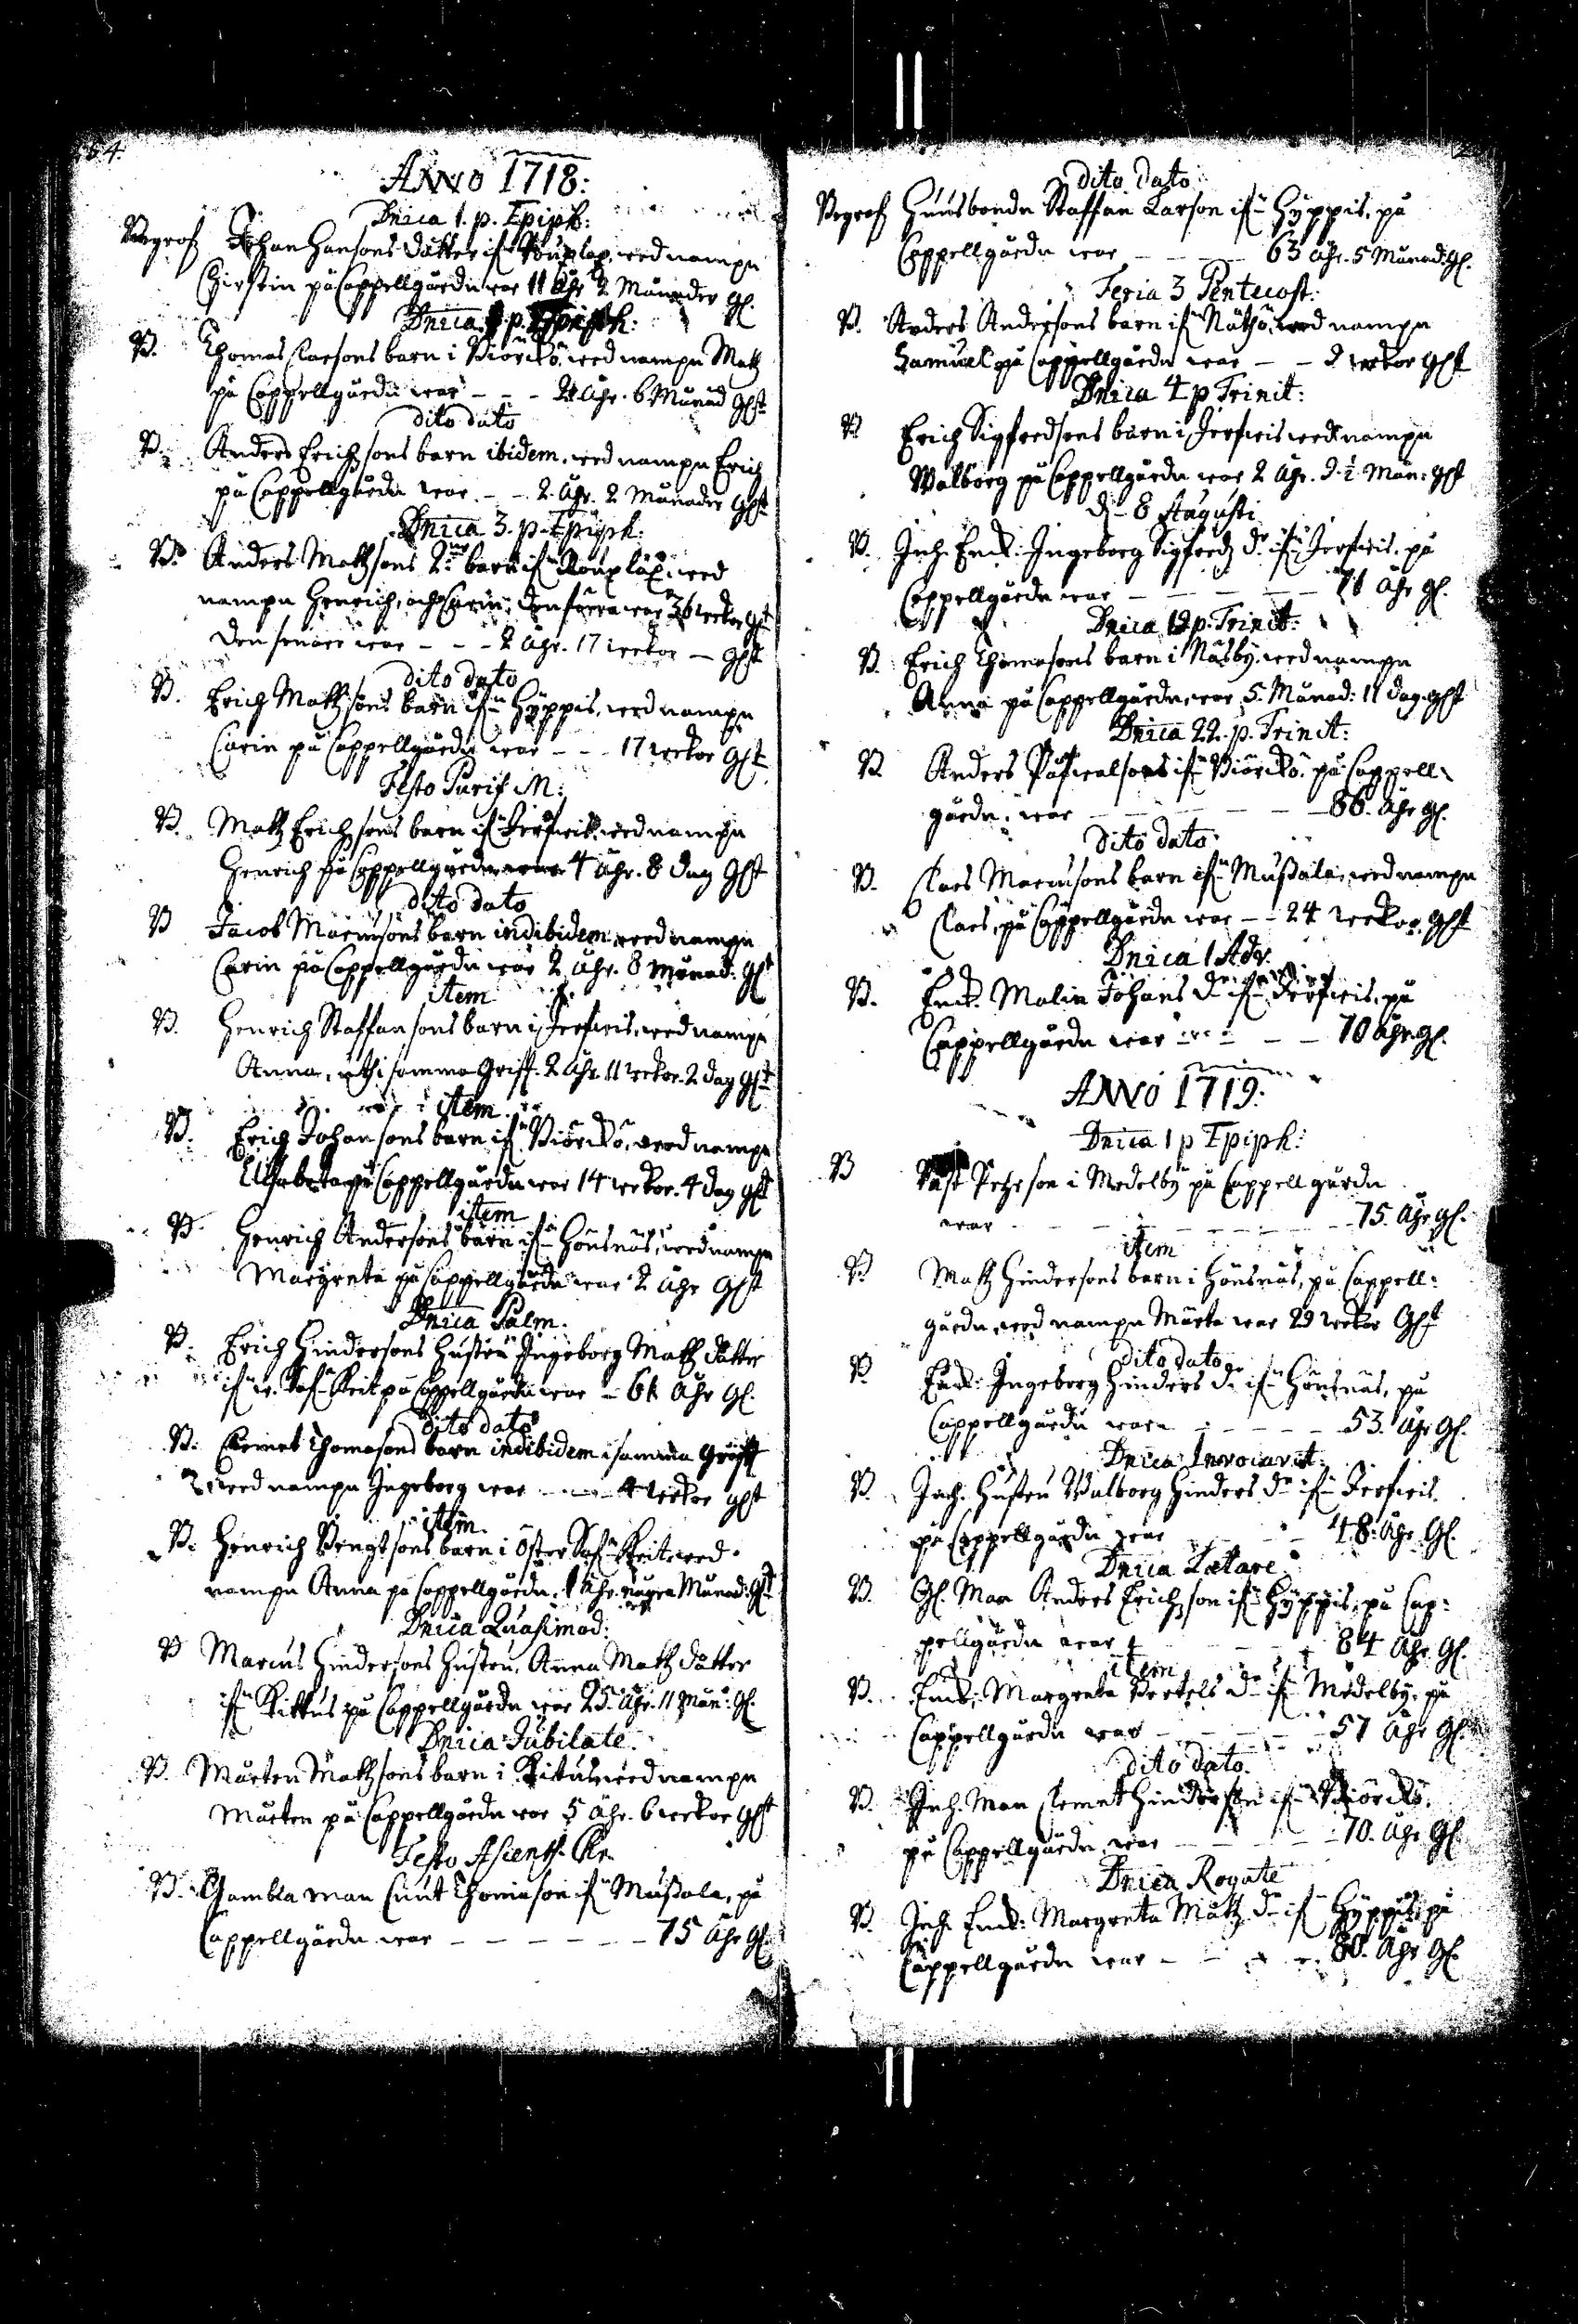 54.
ANNO 1718:
Dnica 1. p. Epiph:
Begrofz Johan Hansons dåtter ifrn wed nampn
Chirstin på Cappellgården war 11 åhr 2 Månader Gl.
Dnica 2 p. Epiph:
B. Thomas Clarsons barn i Biörkö, wed nampn Matz
på Cappellgården war - - - 2 åhr. 6 Månad Glt
dito dato
B. Anders Erichsons barn ibidem, wed nampn Erich
på Cappellgården war. - - 2. åhr. 2 Månader Glt
Dnica 3. p. Epiph:
B. Anders Matzsons 2ne barn ifrn wed
nampn Henrich, och Carin, den förra war 36 wekor Glt
den senare war - - - 2 åhr. 17 wekor - Glt
dito dato
B. Erich Matzsons barn ifrn Hyppis, wed nampn
Carin på Cappellgården war - - - 17 wekor Glt
Festo Purif M:
B. Matz Erichsons barn ifrn Jerfwis, wed nampn
Henrich på Cappellgården war 4 åhr. 8 dag Glt
dito dato
B Jacob Marcusons barn indibidem, wed nampn
Carin på Cappellgården war 2 åhr. 8 Månad: Glt
item
B. Henrich Staffansons barn i Jerfwis, wed nampn
Anna, uthi samma Griff. 2 åhr. 11 wekor. 2 dag Glt
item
B. Erich Johansons barn ifrn Biörkö, wed nampn
Elisabeta på Cappellgården war 14 wekor. 4 dag Glt
item
B. Henrich Andersons barn ifrn Hönsnäs, wed nampn
Margreta på Cappellgården war 2 åhr Glt
Dnica Palm.
B. Erich Hindersons Hustru Ingeborg Matz dåtter
ifrn w. Saf Keit på Cappellgården war - 61 åhr Gl.
dito dato
B. Clemet Thomasons barn indibidem i samma Gröfft
wed nampn Ingeborg war - - - 4 wekor Glt
item.
B. Henrich Bengtsons barn i Öster Saf Keit wed
nampn Anna på Cappellgården. 1 åhr. några Månad: Glt
Dnica Quasimod:
B Marcus Hindersons Hustru, Anna Matz dåtter
ifrn Kittus på Cappellgården war 25. åhr. 11 Mån: Gl.
Dnica Jubilate.
B. Mårten Matzsons barn i Kitus wed nampn
Mårten på Cappellgården war 5 åhr. 6 wekor Glt
Festo Ascens. Chr.
B. Gambla man Cnut Thomason ifrn Mussala, på
Cappellgården war - - - - - - 75 åhr Gl.
dito dato
Begrofz Huusbonde Staffan Larson ifrn Hyppis, på
Cappellgården war - - - - - 63 åhr. 5 Månad: Gl.
Feria 3 Pentecost:
B. Anders Andersons barn ifrn Näthö, wed nampn
Samuel på Cappellgården war - - 9 wekor Glt
Dnica 4 p Trinit:
B Erich Sigfredsons barn i Jerfwis wed nampn
Walborg på Cappellgården war 2 åhr. 9 ½ Mån: Glt
d. 8 Augusti
B. Inh. Enk: Ingeborg Sigfredz dr ifrn Jerfwis. på
Cappellgården war - - - - - - 71 åhr Gl.
Dnica 19 p. Trinit:
B. Erich Thomasons barn i Näsby, wed nampn
Anna på Cappellgården, war 5. Månad: 11 dag. Glt
Dnica 22. p. Trinit:
B. Anders Påfwalsons ifrn Biörkö. på Cappell-
gården, war - - - - - - 86. åhr Gl.
dito dato
B. Claes Marcusons barn ifrn Mussala, wed nampn
Claes, på Cappellgården war - - 24 wekor. Glt
Dnica 1 Adv.
B. Enk. Malin Johans dr ifrn Jerfwis, på
Cappellgården war - - - - - 70 åhr. Gl.
ANNO 1719:
Dnica 1 p Epiph:
B Petrson i Medelby på Cappellgården
war - - - - - - - - 75. åhr Gl.
item
B. Matz Hindersons barn i Hönsnäs, på Cappell:
gården, wed nampn Marta war 29 wekor Glt
dito dato
B. Enk: Ingeborg Hinders dr ifrn Hönsnäs, på
Cappellgården war - - - - - - 53. åhr Gl.
Dnica Invocavit:
B. Inh. Hustru Walborg Hinders dr ifrn Jerfwis.
på Cappellgården war - - - - 48. åhr. Gl.
Dnica Lætare
B. Gl. Man Anders Erichson ifrn Hyppis, på Cap:
pellgården war - - - - - 84 åhr. Gl.
item
B. Enk: Margreta Bertels dr ifrn Medelby, på
Cappellgården war - - - - - 57 åhr Gl.
dito dato.
B. Inh. Man Clemet Hinderson ifrn Biörkö.
på Cappellgården, war - - - - - 70. åhr Gl.
Dnica Rogate
B. Inh. Enk: Margreta Matz dr ifrn Hyppis, på
Cappellgården war - - - - 80. åhr Gl.